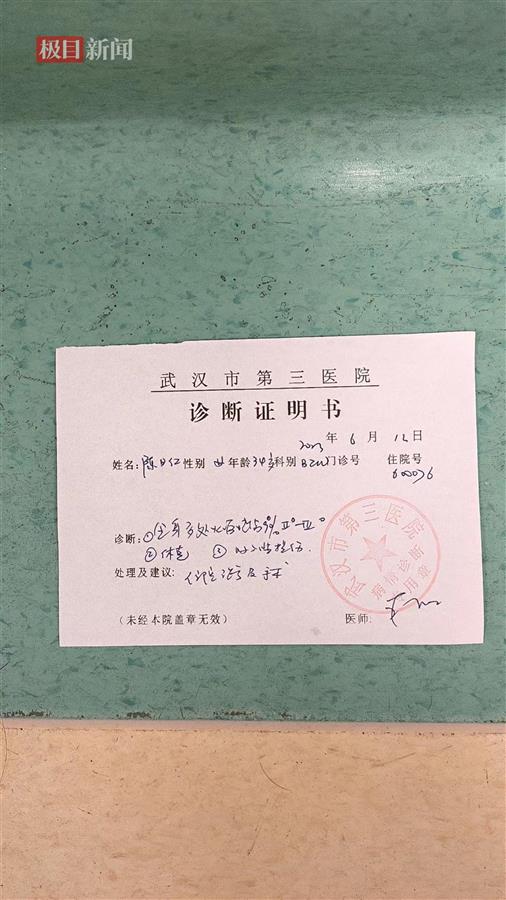 极目新闻
武汉市第三医院
诊断证明书
2023年6月12日
姓名:陈 性别 女 年龄34岁 科别BICU 门诊号 住院号
600076
诊断:①全身多处火焰烧伤 % Ⅱ°-Ⅲ°
②休克 ③吸入性损伤.
处理及建议:住院治疗及手术
(未经本院盖章无效)
医师:
武汉市第三医院
病情诊断
专用章